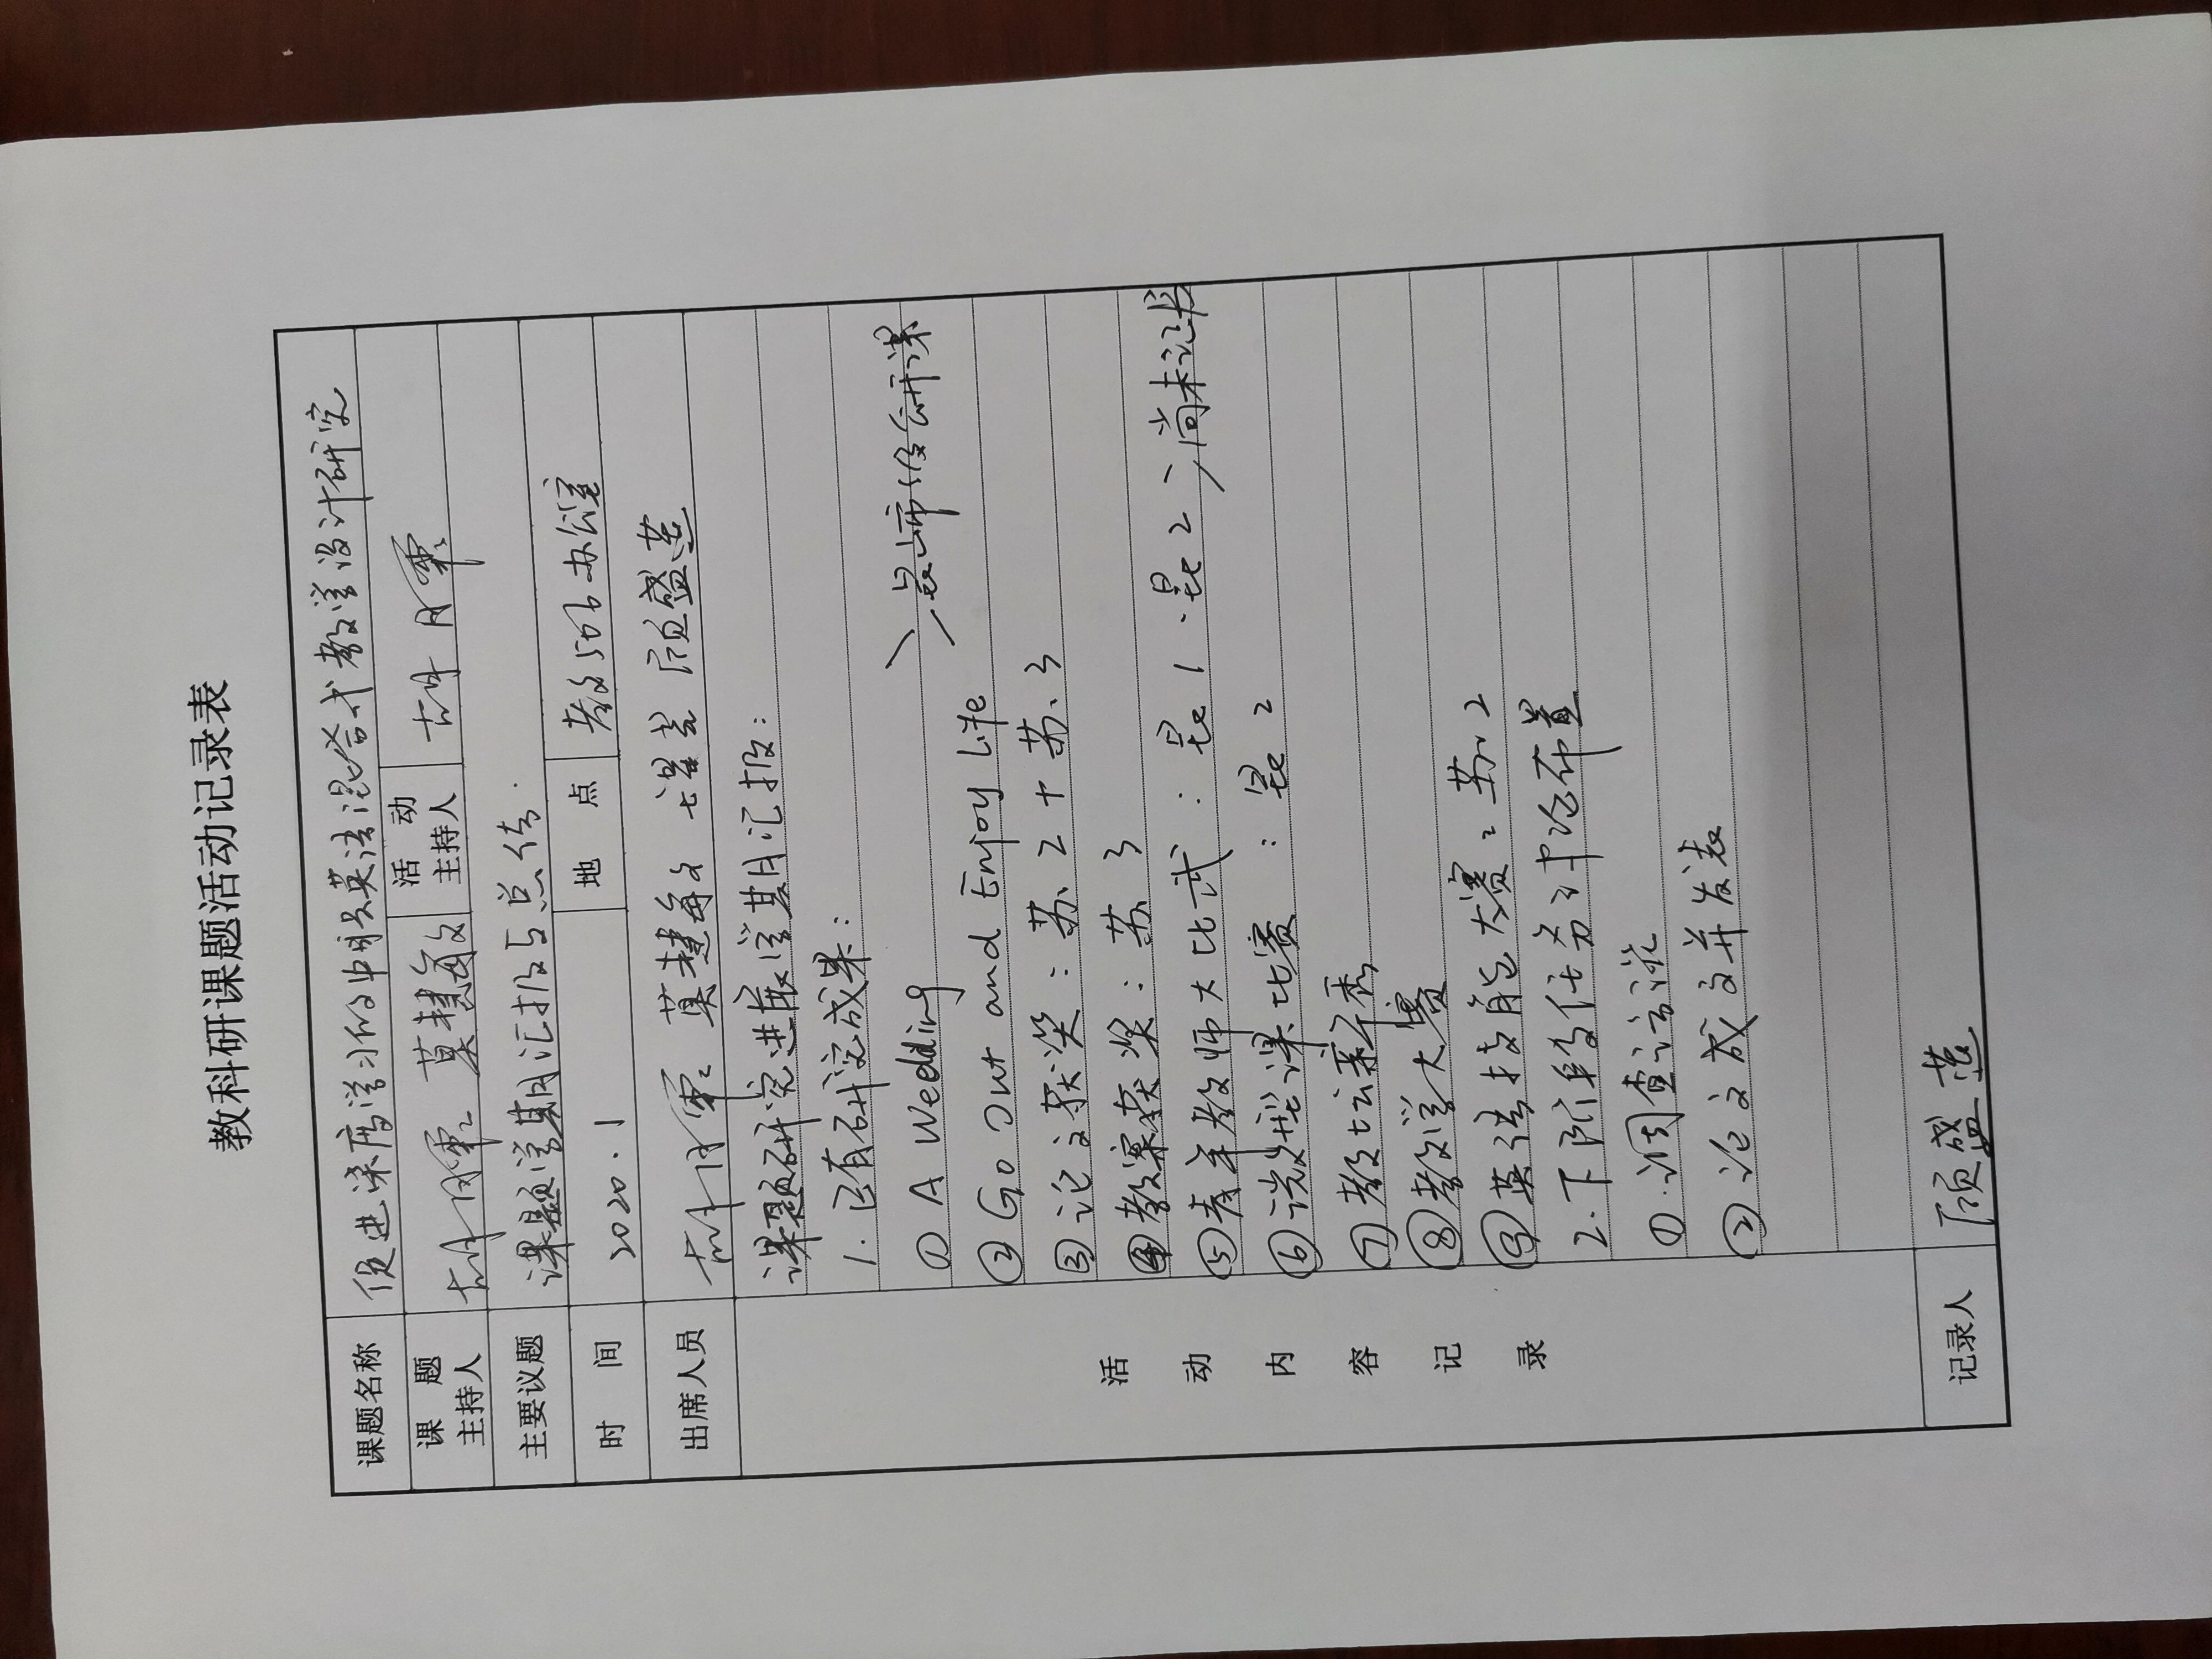 教科研课题活动记录表
课题名称 促进深度学习的中职英语混合式教学设计研究
课题主持人 胡月 莫慧敏 活动主持人 胡月
主要议题 课题学期汇报与总结.
时间 2020.1 地点 教506办公室
出席人员 胡月 莫慧敏 顾盛莲
活动内容记录
课题研究进展学期汇报:
1. 已有研究成果:
① A Wedding
② Go Out and Enjoy Life
昆山市级公开课
③ 论文获奖: 苏2+苏3
④ 教案获奖: 苏3
⑤ 青年教师大比武: 昆1、昆2 尚未证
⑥ 微型课比赛: 昆2
⑦ 教坛新秀
⑧ 教学大赛
⑨ 英语技能大赛: 苏2
2. 下阶段任务讨论布置
①. 调查访谈
② 论文成文并发表
记录人 顾盛莲